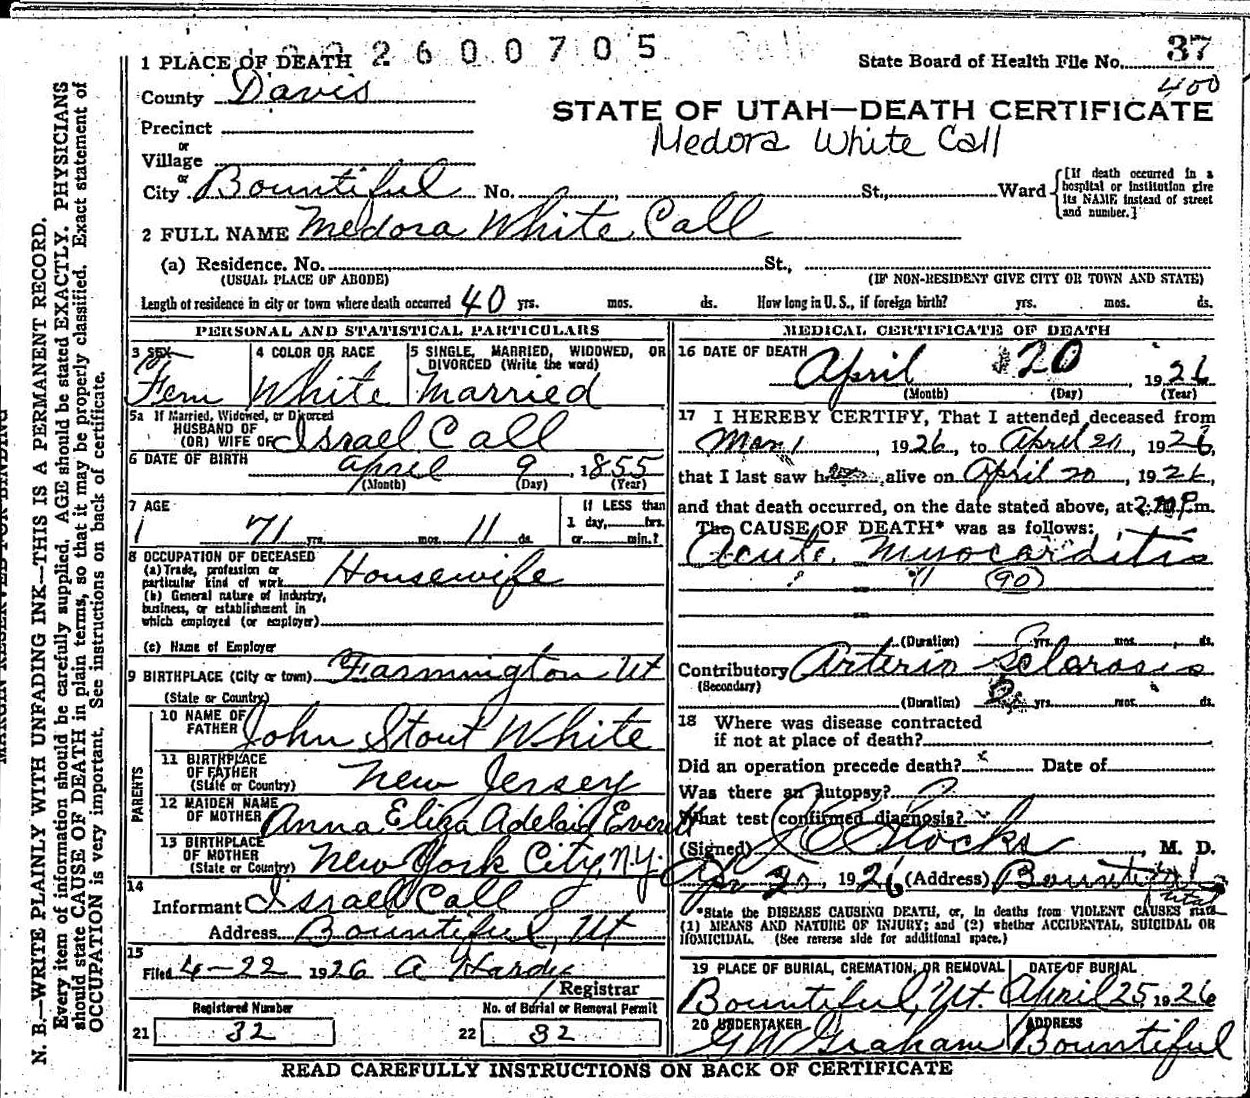 2600705
1 PLACE OF DEATH
State Board of Health File No. 37
400
County Davis
STATE OF UTAH—DEATH CERTIFICATE
Precinct
Medora White Call
or
Village
or
City Bountiful No. , St., Ward
[If death occurred in a hospital or institution give its NAME instead of street and number.]
2 FULL NAME Medora White Call
(a) Residence. No. St.,
(USUAL PLACE OF ABODE) (IF NON-RESIDENT GIVE CITY OR TOWN AND STATE)
Length of residence in city or town where death occurred 40 yrs. mos. ds. How long in U. S., if foreign birth? yrs. mos. ds.
PERSONAL AND STATISTICAL PARTICULARS
3 SEX
Fem
4 COLOR OR RACE
White
5 SINGLE, MARRIED, WIDOWED, OR
DIVORCED (Write the word)
Married
5a If Married, Widowed, or Divorced
HUSBAND OF
(OR) WIFE OF Israel Call
6 DATE OF BIRTH April 9 1855
(Month) (Day) (Year)
7 AGE
71 yrs. mos. 11 ds.
If LESS than
1 day, hrs.
or min.?
8 OCCUPATION OF DECEASED
(a) Trade, profession or
particular kind of work Housewife
(b) General nature of industry,
business, or establishment in
which employed (or employer)
(c) Name of Employer
9 BIRTHPLACE (City or town) Farmington Ut
(State or Country)
PARENTS
10 NAME OF
FATHER John Stout White
11 BIRTHPLACE
OF FATHER New Jersey
(State or Country)
12 MAIDEN NAME
OF MOTHER Anna Eliza Adelaid Everett
13 BIRTHPLACE
OF MOTHER New York City, N.Y.
(State or Country)
14
Informant Israel Call
Address Bountiful, Ut
15
Filed 4-22 1926 A Hardy
Registrar
Registered Number
21 32
No. of Burial or Removal Permit
22 32
MEDICAL CERTIFICATE OF DEATH
16 DATE OF DEATH
April 20, 1926
(Month) (Day) (Year)
17 I HEREBY CERTIFY, That I attended deceased from
Mar 1, 1926, to April 20, 1926,
that I last saw her alive on April 20, 1926,
and that death occurred, on the date stated above, at P.m.
The CAUSE OF DEATH* was as follows:
Acute Myocarditis
90
(Duration) yrs. mos. ds.
Contributory Arterio Sclerosis
(Secondary)
(Duration) yrs. mos. ds.
18 Where was disease contracted
if not at place of death?
Did an operation precede death? Date of
Was there an autopsy?
What test confirmed diagnosis?
(Signed) Stocks, M. D.
Apr 20, 1926 (Address) Bountiful
Utah
*State the DISEASE CAUSING DEATH, or, in deaths from VIOLENT CAUSES state
(1) MEANS AND NATURE OF INJURY; and (2) whether ACCIDENTAL, SUICIDAL OR
HOMICIDAL. (See reverse side for additional space.)
19 PLACE OF BURIAL, CREMATION, OR REMOVAL
Bountiful, Ut.
DATE OF BURIAL
April 25, 1926
20 UNDERTAKER
GW Graham
ADDRESS
Bountiful
READ CAREFULLY INSTRUCTIONS ON BACK OF CERTIFICATE
MARGIN RESERVED FOR BINDING
N. B.—WRITE PLAINLY WITH UNFADING INK—THIS IS A PERMANENT RECORD.
Every item of information should be carefully supplied. AGE should be stated EXACTLY. PHYSICIANS
should state CAUSE OF DEATH in plain terms, so that it may be properly classified. Exact statement of
OCCUPATION is very important. See instructions on back of certificate.